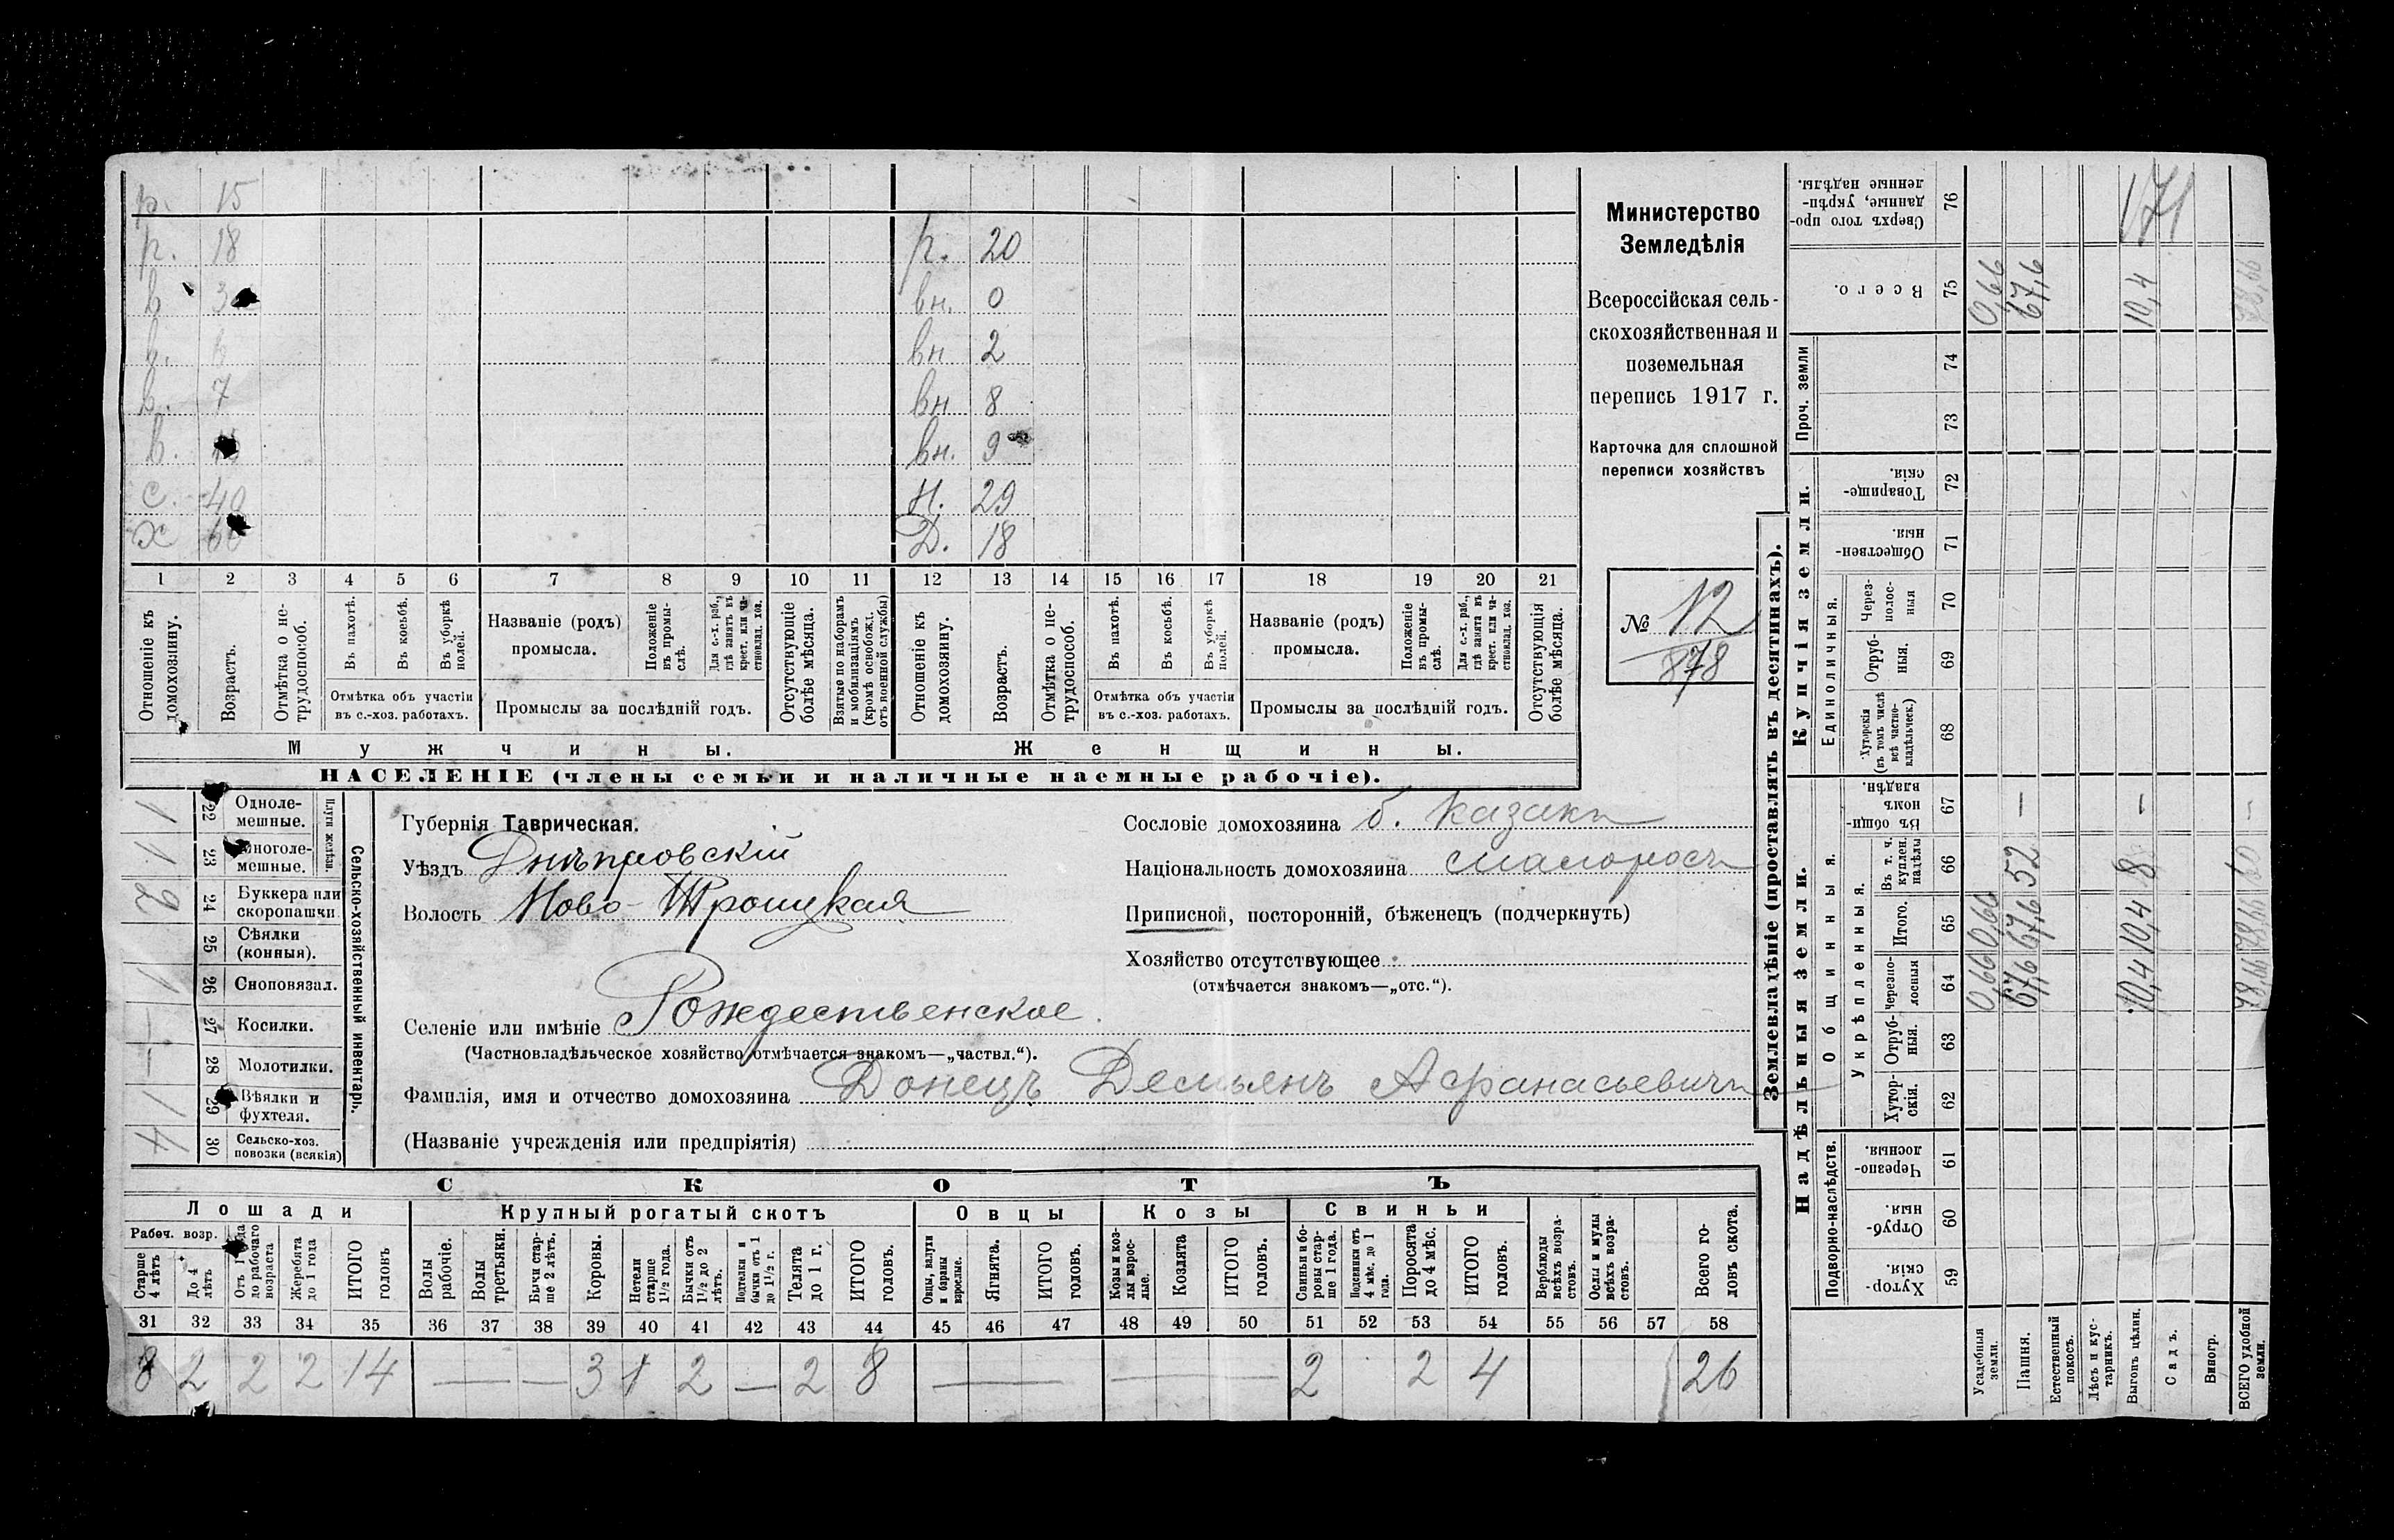 р. 15
р. 18 р. 20
в вн. 0
в. вн 2
в. 7 вн 8
в. вн. 9
с. 40 Н. 29
Х Д. 18
1 2 3 4 5 6 7 8 9 10 11 12 13 14 15 16 17 18 19 20 21
Отношеніе къ домохозяину.
Возрастъ.
Отмѣтка о не-трудоспособ.
Въ пахотѣ.
Въ косьбѣ.
Въ уборкѣ полей.
Отмѣтка объ участіи
въ с.-хоз. работахъ.
Названіе (родъ)
промысла.
Положеніе въ промы-слѣ.
Для с.-х. раб., гдѣ занятъ въ крест. или ча-стновлад. хоз.
Промыслы за послѣдній годъ.
Отсутствующіе болѣе мѣсяца.
Взятые по наборамъ и мобилизаціямъ (кромѣ освобожд. отъ военной службы)
Отношеніе къ домохозяину.
Возрастъ.
Отмѣтка о не-трудоспособ.
Въ пахотѣ.
Въ косьбѣ.
Въ уборкѣ полей.
Отмѣтка объ участіи
въ с.-хоз. работахъ.
Названіе (родъ)
промысла.
Положеніе въ промы-слѣ.
Для с.-х. раб., гдѣ занята въ крест. или ча-стновлад. хоз.
Промыслы за послѣдній годъ.
Отсутствующія болѣе мѣсяца.
Мужчины. Женщины.
НАСЕЛЕНІЕ (члены семьи и наличные наемные рабочіе).
Министерство
Земледѣлія
Всероссійская сель-
скохозяйственная и
поземельная
перепись 1917 г.
Карточка для сплошной
переписи хозяйствъ
№ 12
878
Сельско-хозяйственный инвентарь.
Плуги желѣзн.
22 Одноле-мешные. 1
23 Многоле-мешные. 1
24 Буккера или скоропашчи 2
25 Сѣялки (конныя).
26 Сноповязал. 1
27 Косилки. —
28 Молотилки. —
29 Вѣялки и фухтеля. 1
30 Сельско-хоз. повозки (всякія) 4
Губернія Таврическая.
Уѣздъ Днѣпровскій
Волость Ново-Троицкая
Селеніе или имѣніе Рождественское.
(Частновладѣльческое хозяйство отмѣчается знакомъ—„частвл.“).
Фамилія, имя и отчество домохозяина Донецъ Демьянъ Афанасьевичъ
(Названіе учрежденія или предпріятія)
Сословіе домохозяина б. казакъ
Національность домохозяина малоросъ
Приписной, посторонній, бѣженецъ (подчеркнуть)
Хозяйство отсутствующее
(отмѣчается знакомъ—„отс.“).
СКОТЪ
Лошади Крупный рогатый скотъ Овцы Козы Свиньи
Рабоч. возр.
Старше 4 лѣтъ
До 4 лѣтъ
Отъ 1 года до рабочаго возраста
Жеребята до 1 года
ИТОГО головъ
Волы рабочіе.
Волы третьяки.
Бычи стар-ше 2 лѣтъ.
Коровы.
Нетели старше 1½ года.
Бычки отъ 1½ до 2 лѣтъ.
Подтелки и бычки отъ 1 до 1½ г.
Телята до 1 г.
ИТОГО головъ.
Овцы, валухи и бараны взрослые.
Ягнята.
ИТОГО головъ.
Козы и коз-лы взрос-лые.
Козлята
ИТОГО головъ.
Свиньи и бо-ровы стар-ше 1 года.
Подсвинки отъ 4 мѣс. до 1 года.
Поросята до 4 мѣс.
ИТОГО головъ.
Верблюды всѣхъ возра-стовъ.
Ослы и мулы всѣхъ возра-стовъ.
Всего го-ловъ скота.
31 32 33 34 35 36 37 38 39 40 41 42 43 44 45 46 47 48 49 50 51 52 53 54 55 56 57 58
8 2 2 2 14 — — 3 1 2 — 2 8 — — 2 2 4 26
Землевладѣніе (проставлять въ десятинахъ).
Надѣльныя земли. Купчія земли. Проч. земли
Подворно-наслѣдств. Общинныя. Единоличныя.
Укрѣпленныя.
Хутор-скія. 59
Отруб-ныя. 60
Черезпо-лосныя. 61
Хутор-скія. 62
Отруб-ныя. 63
Черезпо-лосныя 64
Итого. 65
Въ т. ч. куплен. надѣлы 66
Въ общин-номъ владѣн. 67
Хуторскія (въ томъ числѣ всѣ частно-владѣльческ.) 68
Отруб-ныя. 69
Через-полос-ныя 70
Обществен-ныя. 71
Товарище-скія. 72
73
74
Всего. 75
Сверхъ того про-данные, укрѣп-ленные надѣлы. 76
Усадебныя земли. 0,66 0,66 0,66
Пашня. 67,6 67,6 52 — 67,6
Естественный покосъ.
Лѣсъ и кус-тарникъ.
Выгонъ цѣлин. 10,4 10,4 8 — 10,4 171
Садъ.
Виногр.
ВСЕГО удобной земли. 78,66 78,66 60 — 78,66